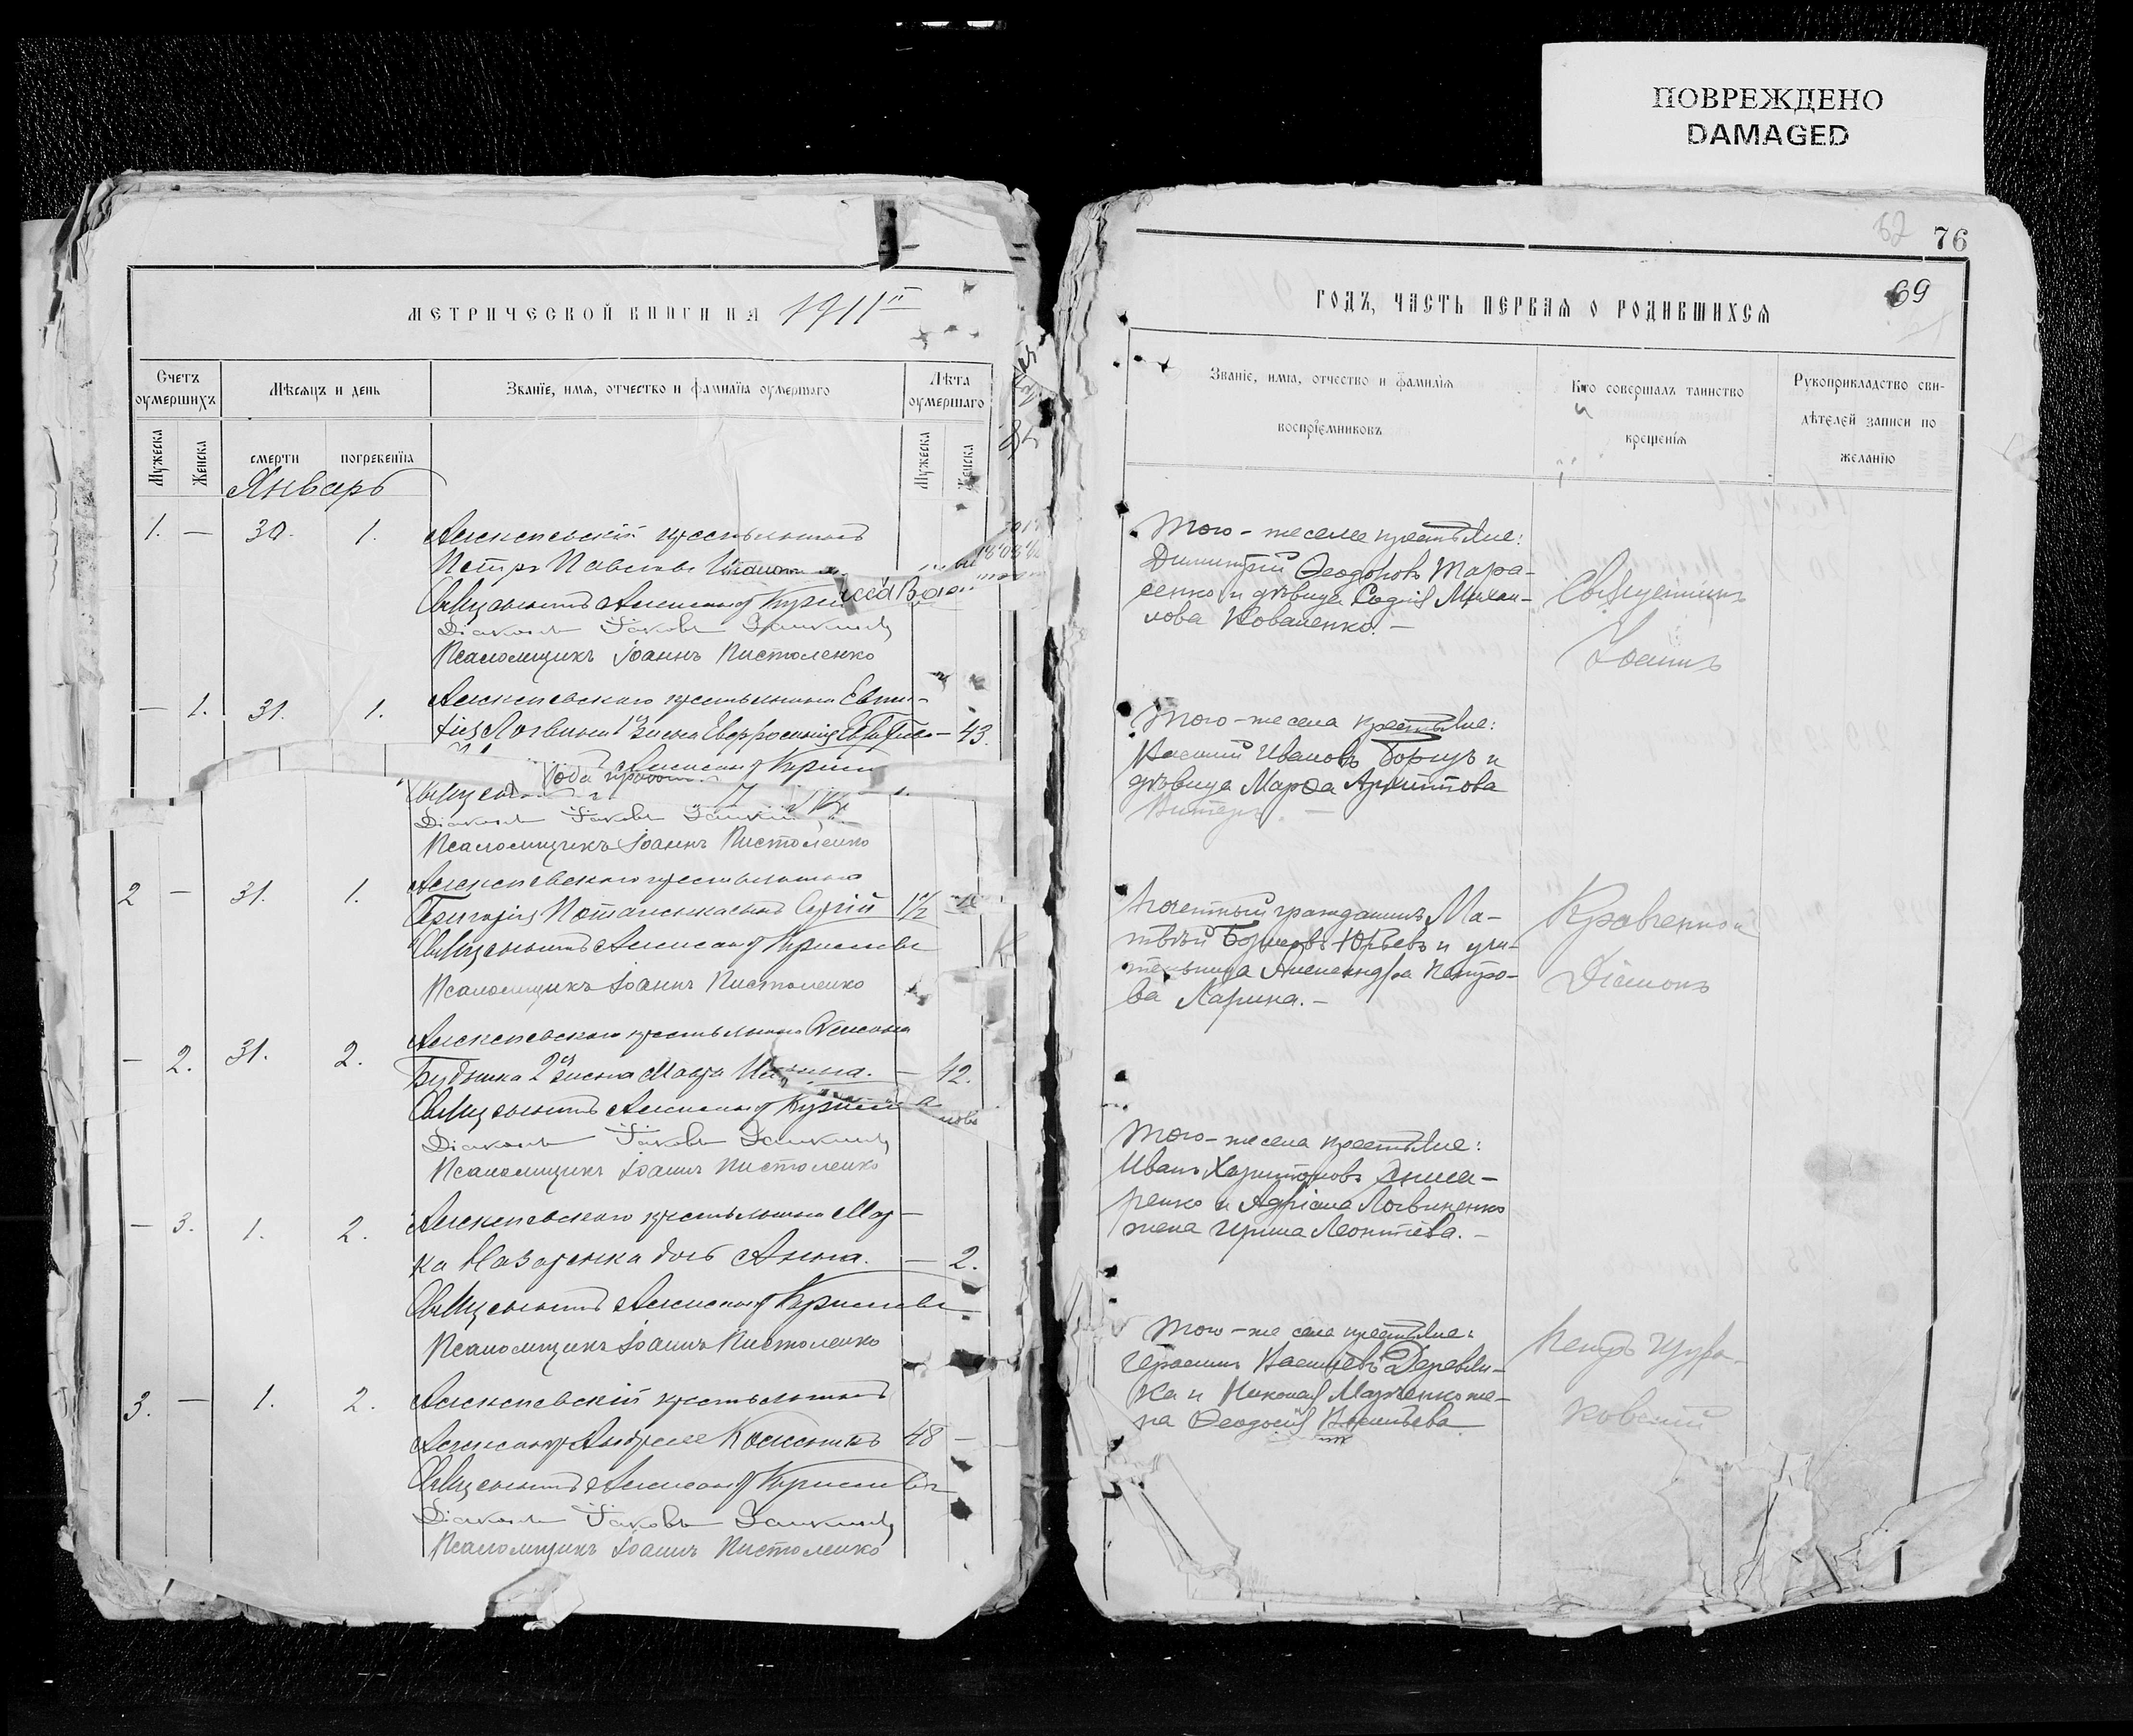 ПОВРЕЖДЕНО
DAMAGED
МЕТРИЧЕСКОЙ КНИГИ НА 1911
Счетъ оумершихъ
Мѣсяцъ и день
Званіе, имя, отчество и фамиліа оумершаго
Лѣта оумершаго
Мужеска
Женска
смерти
погребеніа
Мужеска
Женска
Январь
1. — 30. 1. Алексѣевскій крестьянинъ
Петръ Павловъ
Священникъ Александръ
Діаконъ Іаковъ
Псаломщикъ Іоаннъ Пистоленко
— 1. 31. 1. Алексѣевскаго крестьянина Евти-
фія Логвина жена Евфросинія — 43.
Александръ
Священникъ
Діаконъ Іаковъ
Псаломщикъ Іоаннъ Пистоленко
2 — 31. 1. Алексѣевскаго крестьянина
Григорія Потапенка сынъ Сергій 1½
Священникъ Александръ
Псаломщикъ Іоаннъ Пистоленко
— 2. 31. 2. Алексѣевскаго крестьянина
жена — 42.
Священникъ Александръ
Діаконъ Іаковъ
Псаломщикъ Іоаннъ Пистоленко
— 3. 1. 2. Алексѣевскаго крестьянина Мар-
ка Назаренка дочь Анна. — 2.
Священникъ Александръ
Псаломщикъ Іоаннъ Пистоленко
3. — 1. 2. Алексѣевскій крестьянинъ
Александръ Андреевъ 48 —
Священникъ Александръ
Діаконъ Іаковъ
Псаломщикъ Іоаннъ Пистоленко
62 76
69
ГОДЪ, ЧАСТЬ ПЕРВАЯ О РОДИВШИХСЯ
Званіе, имя, отчество и фамиліа
воспріемниковъ
Кто совершалъ таинство
крещенія
Рукоприкладство сви-
дѣтелей записи по
желанію
Того-же села крестьяне:
Димитрій Ѳеодоровъ Тара-
сенко и дѣвица Софія Михаи-
лова Коваленко. —
Священникъ
Іоаннъ
Того-же села крестьяне:
Василій Ивановъ Борецъ и
дѣвица Марѳа Архиппова
Почетный гражданинъ Ма-
твѣй Юрьевъ и учи-
тельница Александра Петро-
ва Ларина. —
Кравченко и
Діаконъ
Того-же села крестьяне:
Иванъ Харитоновъ
ренко и Адріана Логвиненко
жена Ирина Леонтіева. —
Того-же села крестьяне:
Герасимъ Василіевъ Деревян-
ка и Николая Марченко же-
на Ѳеодосія Васильева
Петръ
ковскій